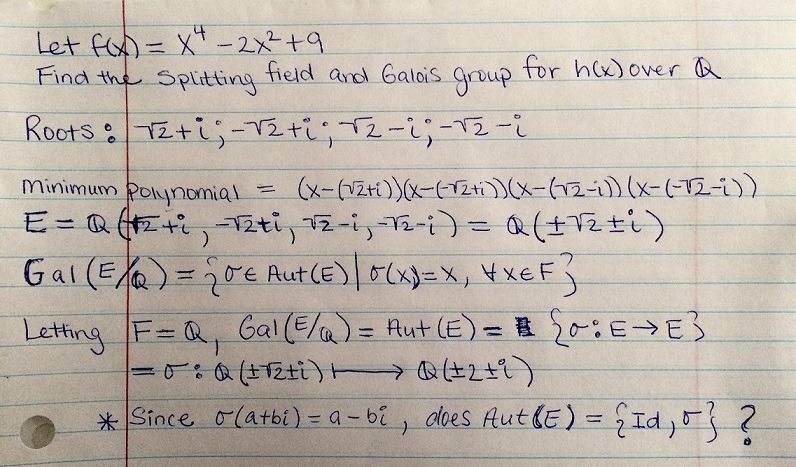 Let f(x) = x⁴ - 2x² + 9
Find the splitting field and Galois group for h(x) over ℚ
Roots: √2+i; -√2+i; √2-i; -√2-i
Minimum polynomial = (x-(√2+i))(x-(-√2+i))(x-(√2-i))(x-(-√2-i))
E = ℚ(√2+i, -√2+i, √2-i, -√2-i) = ℚ(±√2±i)
Gal(E/ℚ) = {σ∈ Aut(E) | σ(x)=x, ∀x∈F}
Letting F=ℚ, Gal(E/ℚ) = Aut(E) = {σ: E→E}
= σ: ℚ(±√2±i) ⟼ ℚ(±2±i)
* Since σ(a+bi) = a-bi, does Aut(E) = {Id, σ} ?